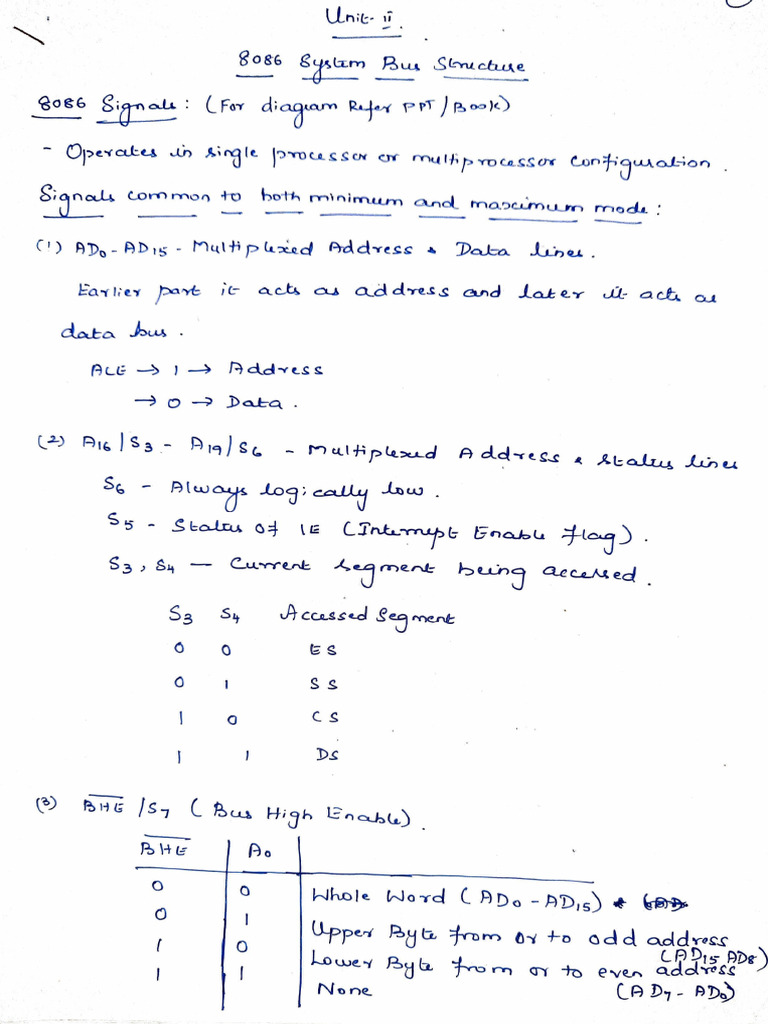 Unit-II.
8086 System Bus Structure
8086 Signals: (For diagram Refer PPT/Book)
- Operates in single processor or multiprocessor configuration.
Signals common to both minimum and maximum mode:
(1) AD0-AD15 - Multiplexed Address & Data lines.
Earlier part it acts as address and later it acts as
data bus.
ALE → 1 → Address
→ 0 → Data.
(2) A16/S3 - A19/S6 - Multiplexed Address & status lines
S6 - Always logically low.
S5 - Status of IE (Interrupt Enable flag).
S3, S4 — Current segment being accessed.
S3 S4 Accessed Segment
0 0 ES
0 1 SS
1 0 CS
1 1 DS
(3) B̅H̅E̅/S7 (Bus High Enable).
B̅H̅E̅ A0
0 0 Whole Word (AD0-AD15)
0 1 Upper Byte from or to odd address (AD15-AD8)
1 0 Lower Byte from or to even address
1 1 None (AD7-AD0)